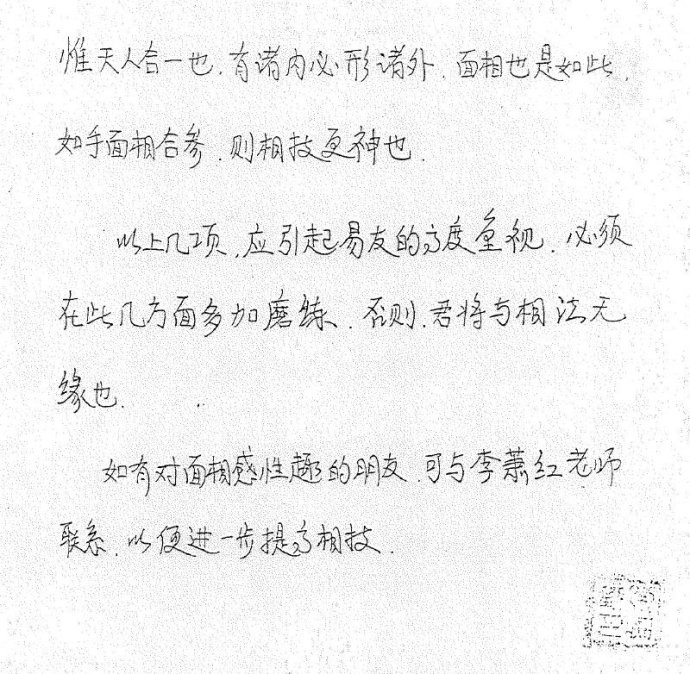 惟天人合一也.有诸内必形诸外.面相也是如此.
如手面相合参.则相技更神也.
以上几项.应引起易友的高度重视.必须
在此几方面多加磨练.否则.君将与相法无
缘也.
如有对面相感性趣的朋友.可与李萧红老师
联系.以便进一步提高相技.